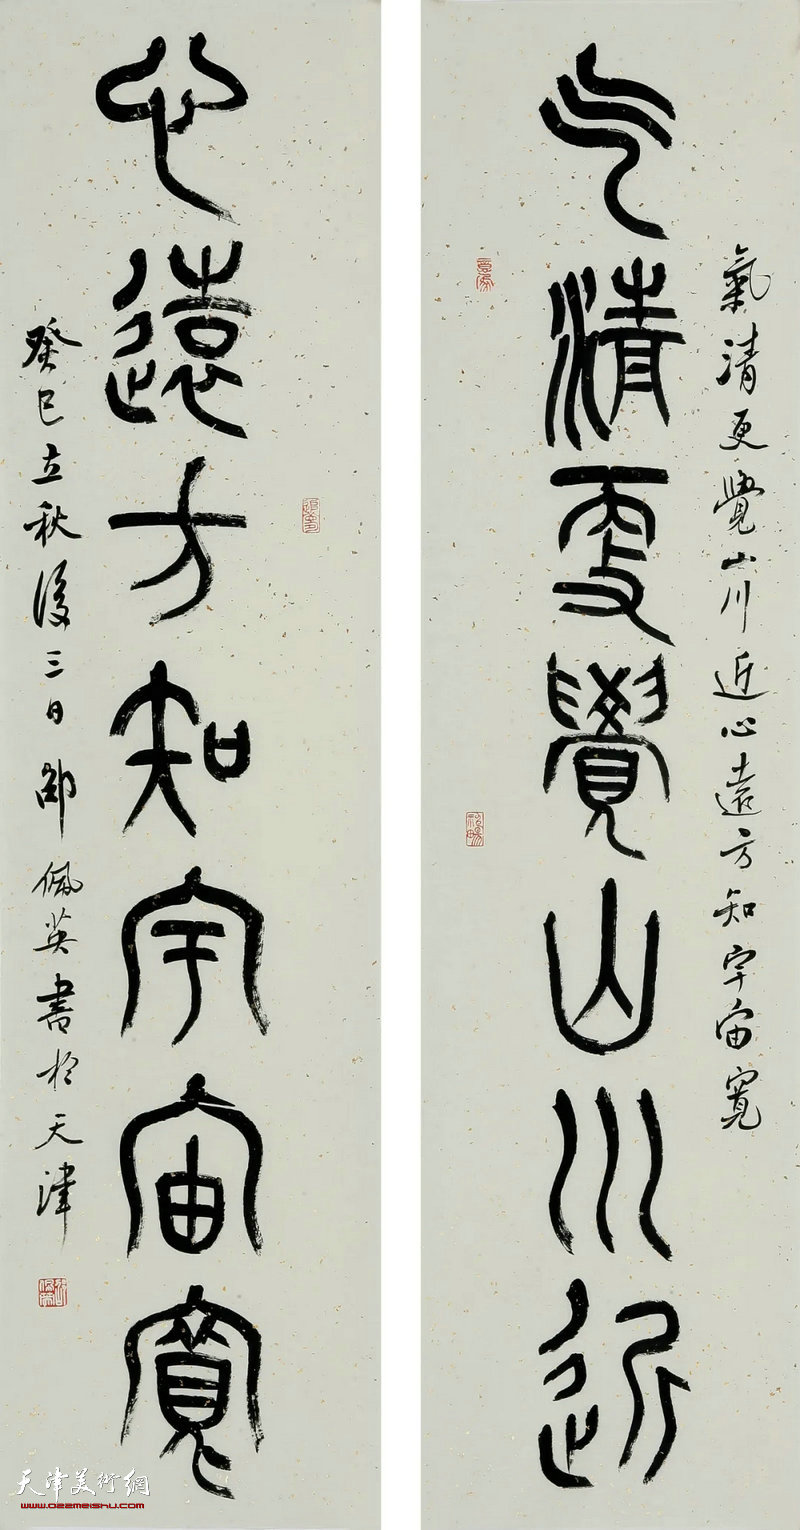 氣清更覺山川近心遠方知宇宙寬
气清更覺山川近
心遠方知宇宙寬
癸巳立秋後三日邵佩英書於天津
天津美術網
www.022meishu.com